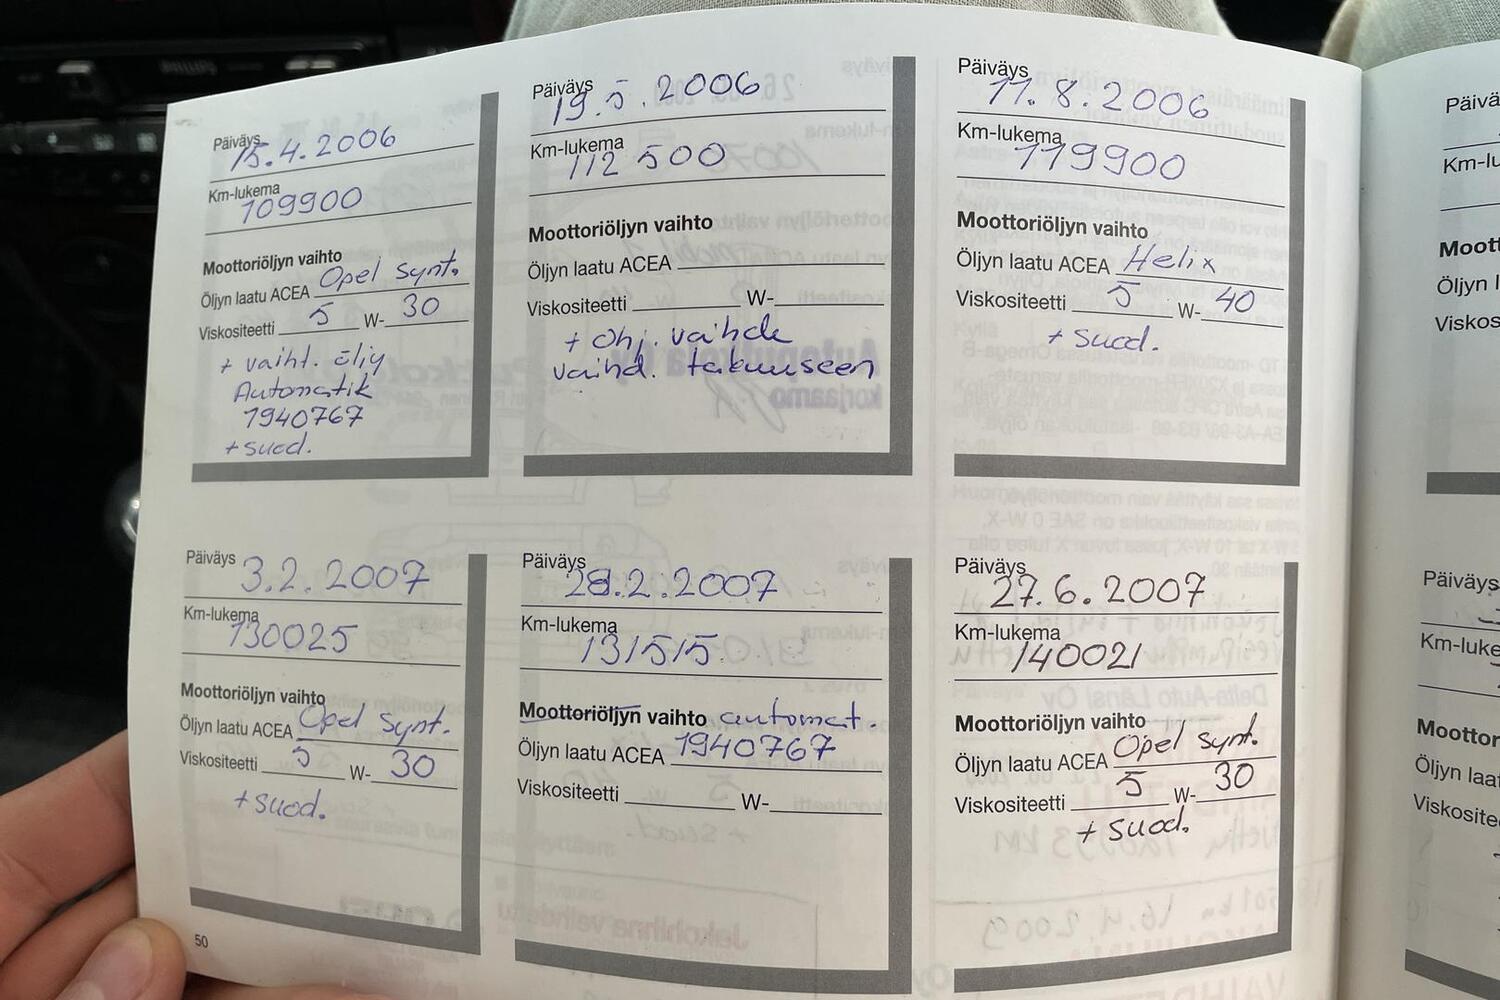 Päiväys 15.4.2006
Km-lukema 109900
Moottoriöljyn vaihto
Öljyn laatu ACEA Opel Synt.
Viskositeetti 5 W- 30
+ vaiht. öljy
Automatik
1940767
+ suod.
Päiväys 19.5.2006
Km-lukema 112 500
Moottoriöljyn vaihto
Öljyn laatu ACEA
Viskositeetti W-
+ Ohj. vaihde
vaihd. takuuseen
Päiväys 11.8.2006
Km-lukema 119900
Moottoriöljyn vaihto
Öljyn laatu ACEA Helix
Viskositeetti 5 W- 40
+ suod.
Päiväys 3.2.2007
Km-lukema 130025
Moottoriöljyn vaihto
Öljyn laatu ACEA Opel Synt.
Viskositeetti 5 W- 30
+ suod.
Päiväys 28.2.2007
Km-lukema 131515
Moottoriöljyn vaihto automat.
Öljyn laatu ACEA 1940767
Viskositeetti W-
Päiväys 27.6.2007
Km-lukema 140021
Moottoriöljyn vaihto
Öljyn laatu ACEA Opel Synt.
Viskositeetti 5 W- 30
+ suod.
50